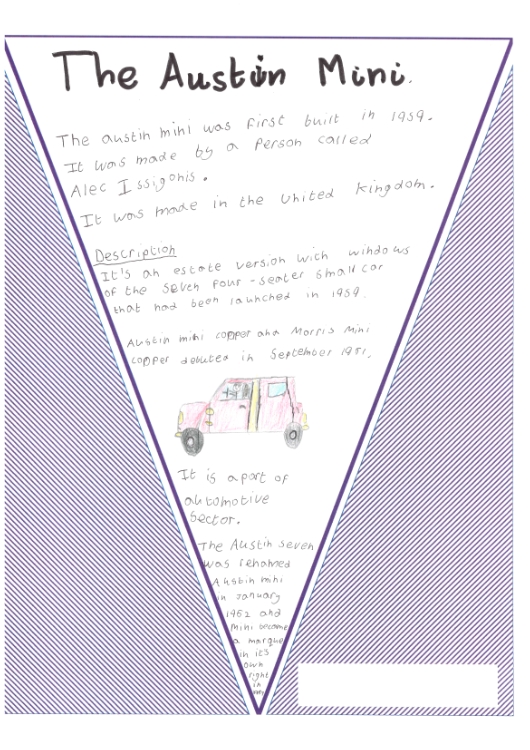 The Austin Mini.
The austin mini was first built in 1959.
It was made by a Person called
Alec Issigonis.
It was made in the United kingdom.
Description
It's an estate version with windows
of the seven four-seater small car
that had been launched in 1959.
Austin mini copper and Morris Mini
copper debuted in September 1961.
It is a part of
automotive
Sector.
The Austin seven
was renamed
Austin mini
in January
1962 and
Mini became
a marque
in it's
own
right
in